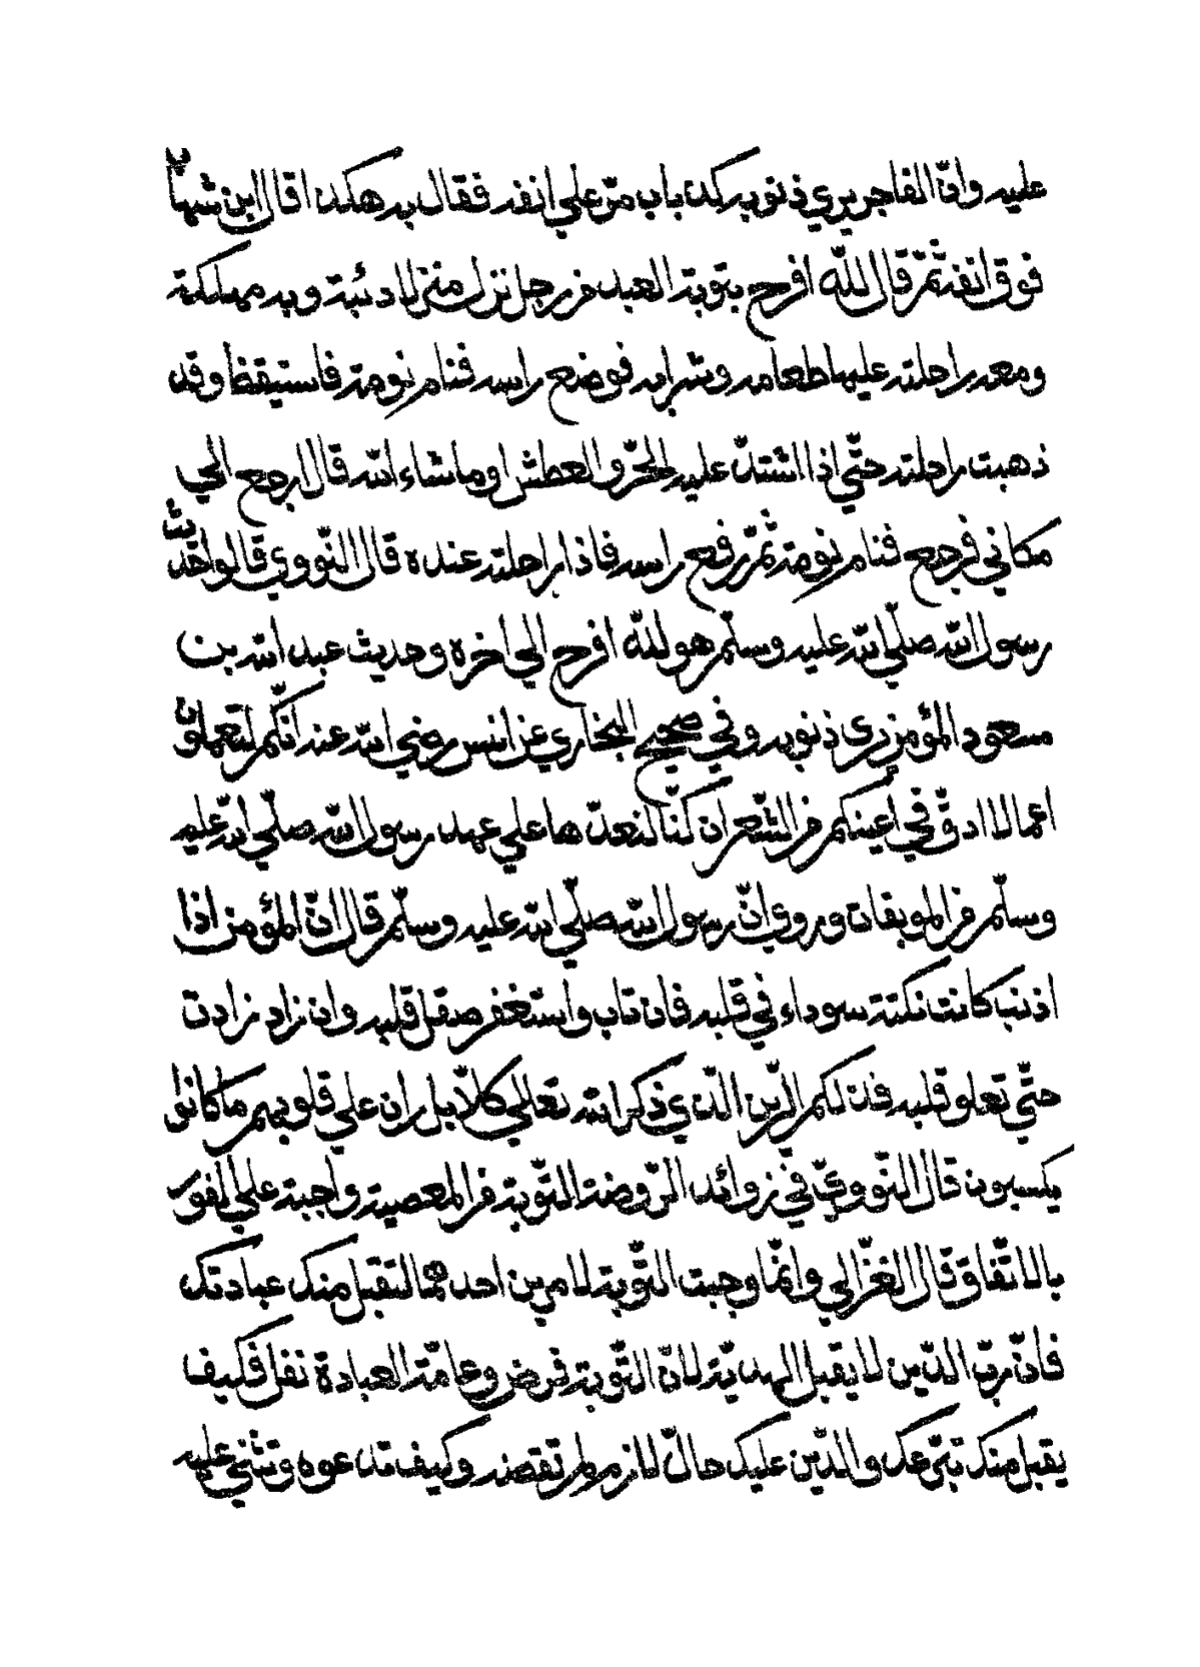 عليه وانّ الفاجر يري ذنوبه كذباب مرّ علي انفه فقال به هكذا قال ابن شهاب
فوق انفه ثمّ قال للّه افرح بتوبة العبد من رجل نزل منزلا دئبة وبه مهلكة
ومعه راحلته عليها طعامه وشرابه فوضع راسه فنام نومة فاستيقظ وقد
ذهبت راحلته حتّي اذا اشتدّ عليه الحرّ والعطش او ما شاء الله قال ارجع الي
مكاني فرجع فنام نومة ثمّ رفع راسه فاذا راحلته عنده قال النّووي قالوا حديث
رسول الله صلّي الله عليه وسلّم هو للّه افرح الي اخره وحديث عبد الله بن
مسعود المؤمن يري ذنوبه وفي صحيح البخاري عن انس رضي الله عنه انّكم لتعملون
اعمالا ادقّ في اعينكم من الشّعر ان كنّا لنعدّها علي عهد رسول الله صلّي الله عليه
وسلّم من الموبقات وروي انّ رسول الله صلّي الله عليه وسلّم قال انّ المؤمن اذا
اذنب كانت نكتة سوداء في قلبه فان تاب واستغفر صقل قلبه وان زاد زادت
حتّي تعلو قلبه فذلكم الرّين الّذي ذكر الله تعالي كلّا بل ران علي قلوبهم ما كانوا
يكسبون قال النّوويّ في زوائد الرّوضة التّوبة من المعصية واجبة علي الفور
بالاتّفاق قال الغزالي وانّما وجبت التّوبة لامرين احدهما لتقبل منك عبادتك
فانّ ربّ الدّين لا يقبل الهديّة لانّ التّوبة فرض وعامّة العبادة نفل فكيف
يقبل منك تبرّعك والدّين عليك حالّ لازم ولم تقضه وكيف تدعوه وتثني عليه